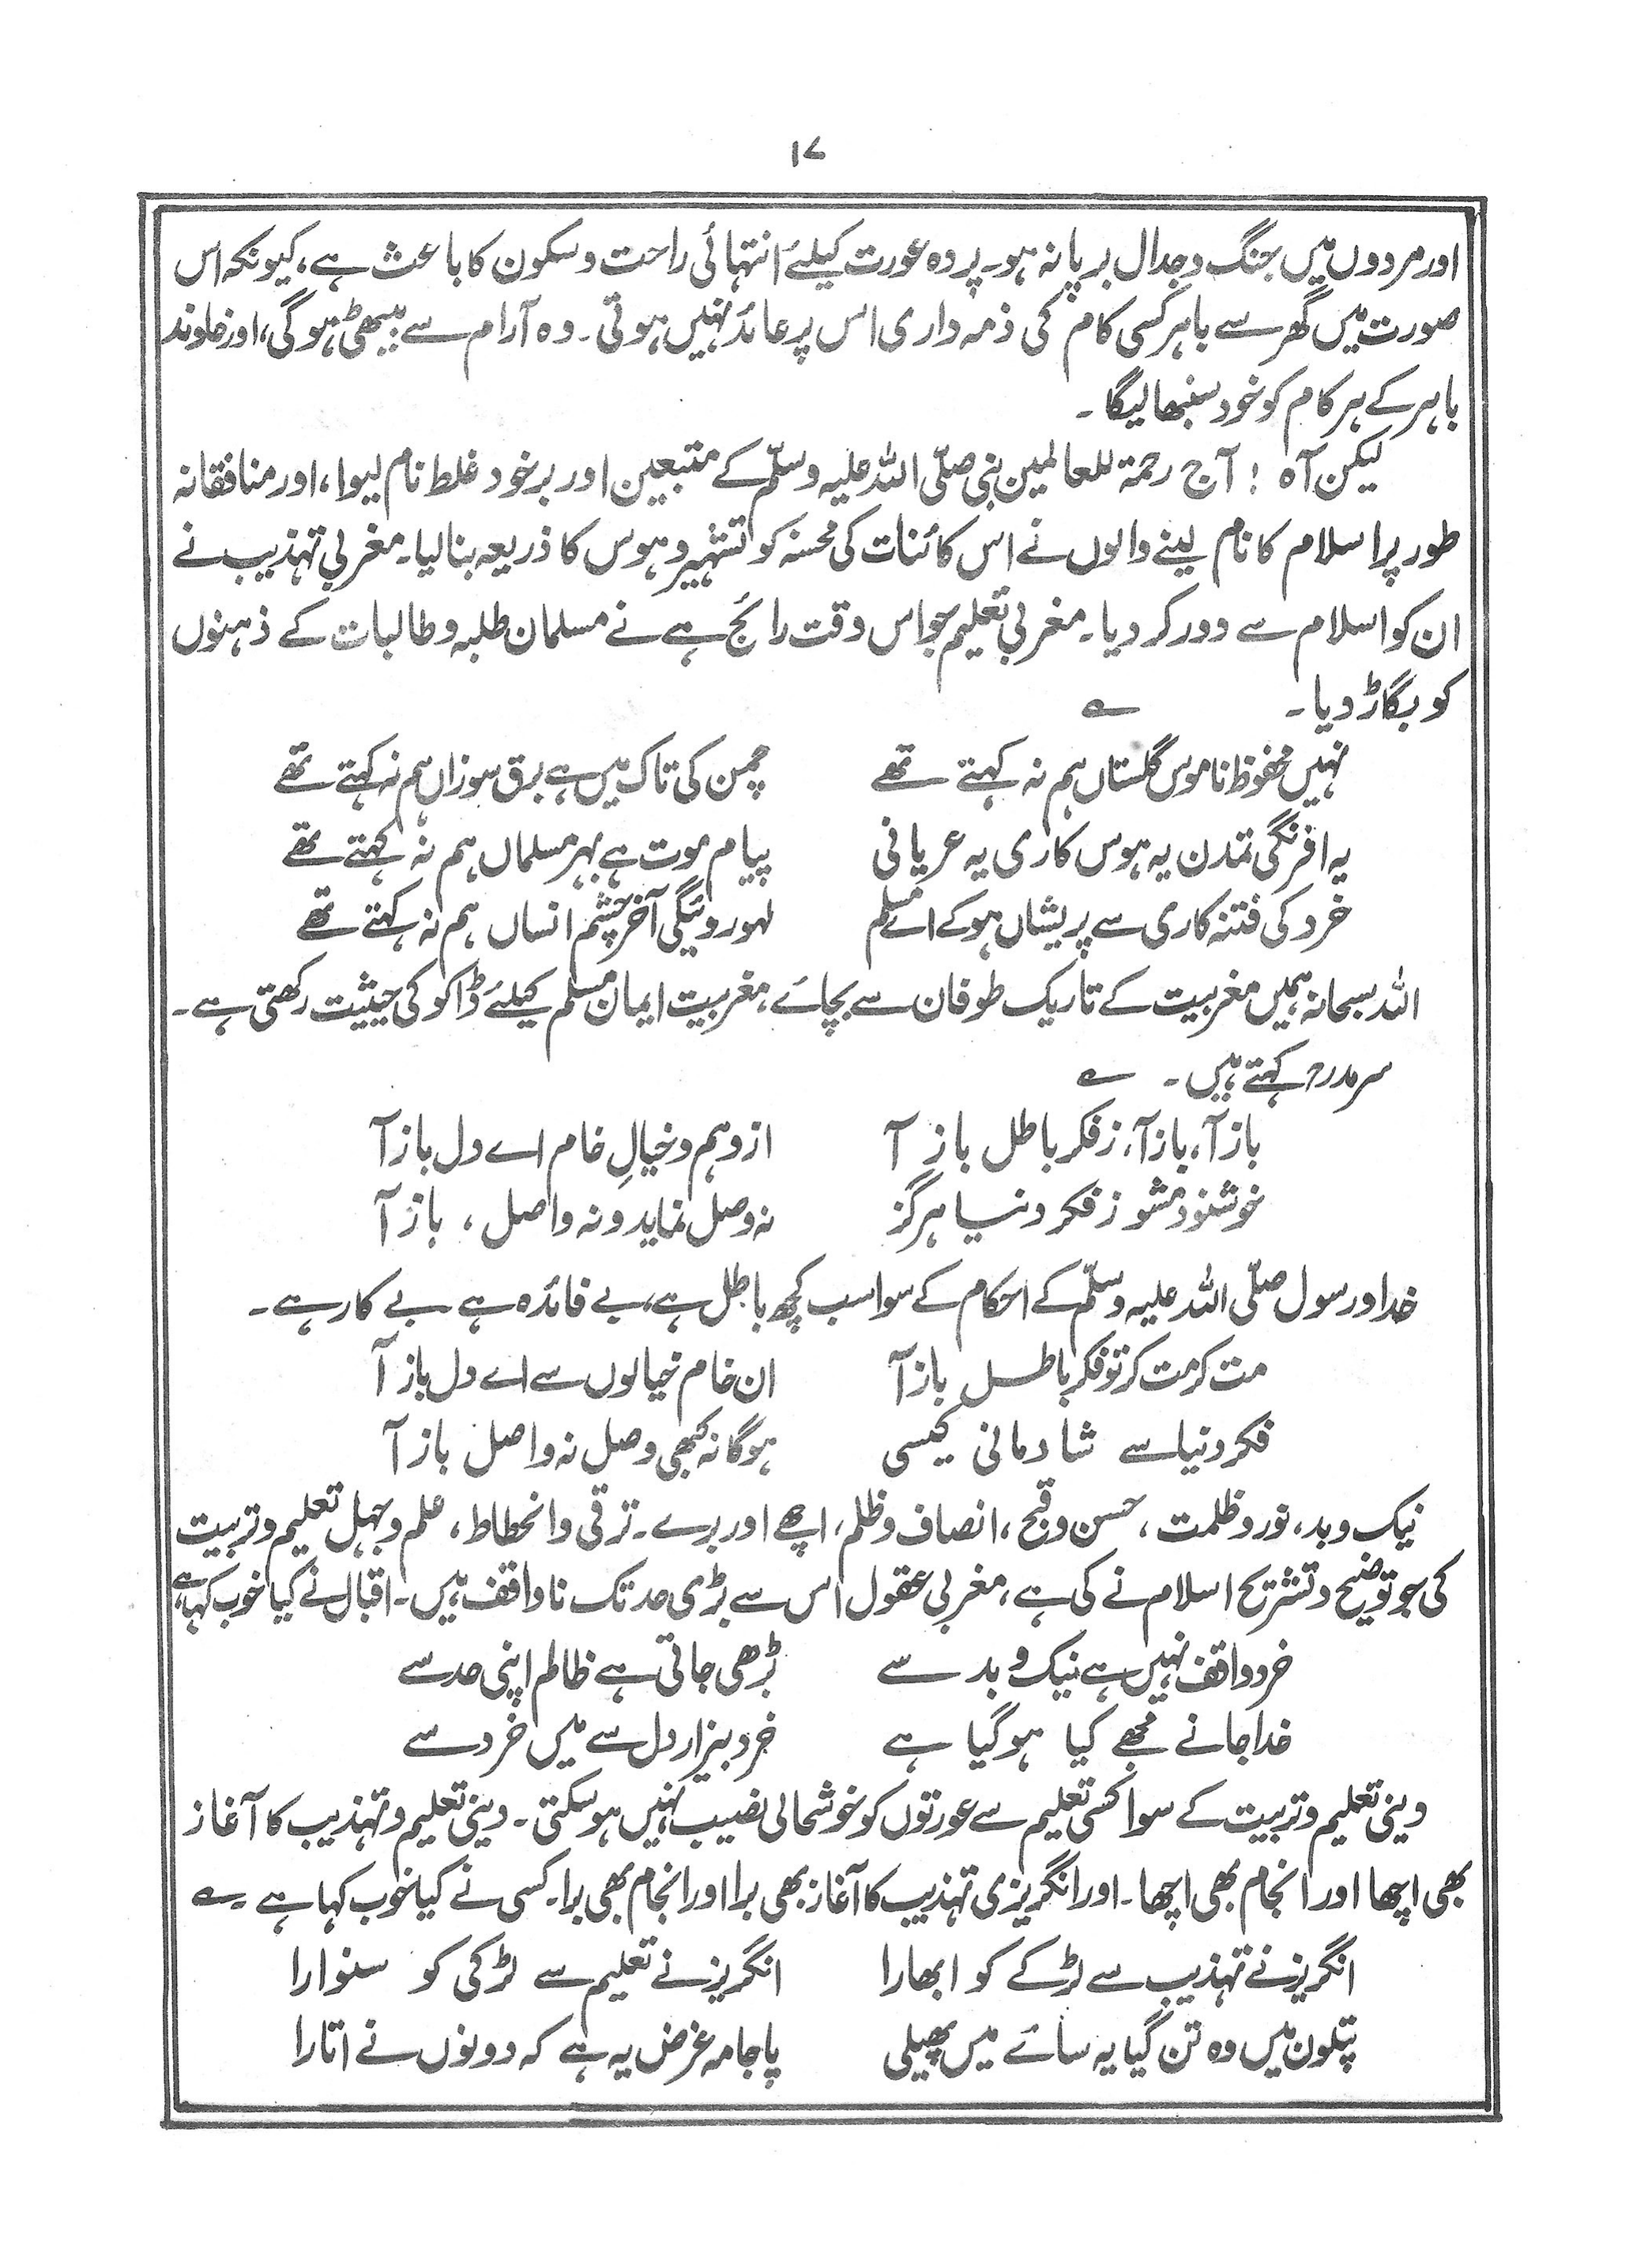 ۱۷
اور مردوں میں جنگ و جدال برپا نہ ہو۔ پردہ عورت کیلئے انتہائی راحت و سکون کا باعث ہے، کیونکہ اس
صورت میں گھر سے باہر کسی کام کی ذمہ داری اس پر عائد نہیں ہوتی۔ وہ آرام سے بیٹھی ہوگی، اور خاوند
باہر کے ہر کام کو خود سنبھالیگا۔
لیکن آہ! آج رحمۃ للعالمین نبی صلّی اللہ علیہ وسلّم کے متبعین اور برخود غلط نام لیوا، اور منافقانہ
طور پر اسلام کا نام لینے والوں نے اس کائنات کی محسنہ کو تشہیر و ہوس کا ذریعہ بنا لیا۔ مغربی تہذیب نے
ان کو اسلام سے دور کر دیا۔ مغربی تعلیم جو اس وقت رائج ہے نے مسلمان طلبہ و طالبات کے ذہنوں
کو بگاڑ دیا۔ ؎
نہیں محفوظ ناموس گلستاں ہم نہ کہتے تھے چمن کی تاک میں ہے برق سوزاں ہم نہ کہتے تھے
یہ افرنگی تمدن یہ ہوس کاری یہ عریانی پیام موت ہے بہر مسلماں ہم نہ کہتے تھے
خرد کی فتنہ کاری سے پریشاں ہو کے اے مسلم لہو روئیگی آخر چشم انساں ہم نہ کہتے تھے
اللہ سبحانہ ہمیں مغربیت کے تاریک طوفان سے بچائے، مغربیت ایمان مسلم کیلئے ڈاکو کی حیثیت رکھتی ہے۔
سرمدؒ کہتے ہیں۔ ؎
باز آ، باز آ، ز فکر باطل باز آ از وہم و خیالِ خام اے دل باز آ
خوشنود مشو ز فکر دنیا ہرگز نہ وصل نماید و نہ واصل، باز آ
خدا و رسول صلّی اللہ علیہ وسلّم کے احکام کے سوا سب کچھ باطل ہے، بے فائدہ ہے بے کار ہے۔
مت کر مت کر تو فکر باطل باز آ ان خام خیالوں سے اے دل باز آ
فکر دنیا سے شادمانی کیسی ہوگا نہ کبھی وصل نہ واصل باز آ
نیک و بد، نور و ظلمت، حسن و قبح، انصاف و ظلم، اچھے اور برے۔ ترقی و انحطاط، علم و جہل تعلیم و تربیت
کی جو توضیح و تشریح اسلام نے کی ہے، مغربی عقول اس سے بڑی حد تک ناواقف ہیں۔ اقبال نے کیا خوب کہا ہے
خرد واقف نہیں ہے نیک و بد سے بڑھی جاتی ہے ظالم اپنی حد سے
خدا جانے مجھے کیا ہو گیا ہے خرد بیزار دل سے میں خرد سے
دینی تعلیم و تربیت کے سوا کسی تعلیم سے عورتوں کو خوشحالی نصیب نہیں ہو سکتی۔ دینی تعلیم و تہذیب کا آغاز
بھی اچھا اور انجام بھی اچھا۔ اور انگریزی تہذیب کا آغاز بھی برا اور انجام بھی برا۔ کسی نے کیا خوب کہا ہے۔ ؎
انگریز نے تہذیب سے لڑکے کو ابھارا انگریز نے تعلیم سے لڑکی کو سنوارا
پتلون میں وہ تن گیا یہ سائے میں پھیلی پاجامہ غرض یہ ہے کہ دونوں نے اتارا